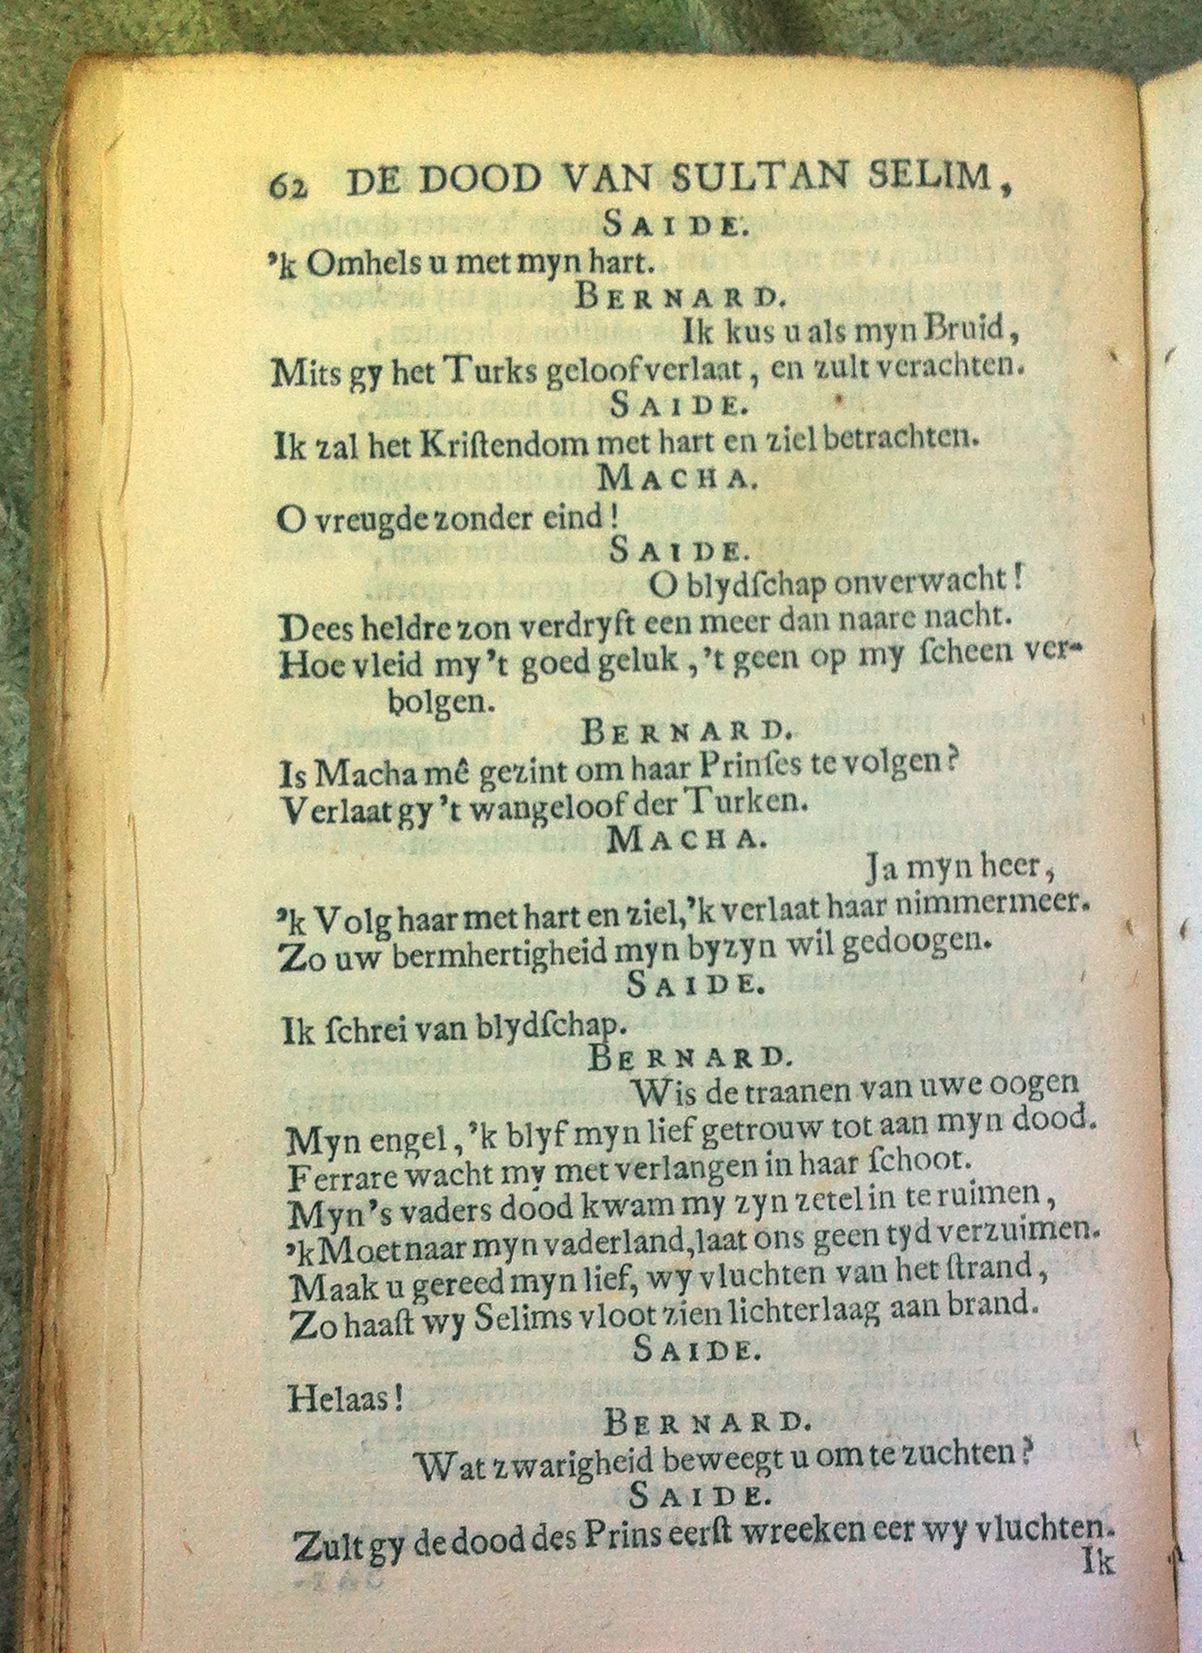 62 DE DOOD VAN SULTAN SELIM,
SAIDE.
’k Omhels u met myn hart.
BERNARD.
Ik kus u als myn Bruid,
Mits gy het Turks geloof verlaat, en zult verachten.
SAIDE.
Ik zal het Kriſtendom met hart en ziel betrachten.
MACHA.
O vreugde zonder eind!
SAIDE.
O blydſchap onverwacht!
Dees heldre zon verdryft een meer dan naare nacht.
Hoe vleid my ’t goed geluk, ’t geen op my ſcheen ver-
bolgen.
BERNARD.
Is Macha mê gezint om haar Prinſes te volgen?
Verlaat gy ’t wangeloof der Turken.
MACHA.
Ja myn heer,
’k Volg haar met hart en ziel, ’k verlaat haar nimmermeer.
Zo uw bermhertigheid myn byzyn wil gedoogen.
SAIDE.
Ik ſchrei van blydſchap.
BERNARD.
Wis de traanen van uwe oogen
Myn engel, ’k blyf myn lief getrouw tot aan myn dood.
Ferrare wacht my met verlangen in haar ſchoot.
Myn’s vaders dood kwam my zyn zetel in te ruimen,
’k Moet naar myn vaderland, laat ons geen tyd verzuimen.
Maak u gereed myn lief, wy vluchten van het ſtrand,
Zo haaſt wy Selims vloot zien lichterlaag aan brand.
SAIDE.
Helaas!
BERNARD.
Wat zwarigheid beweegt u om te zuchten?
SAIDE.
Zult gy de dood des Prins eerſt wreeken eer wy vluchten.
Ik